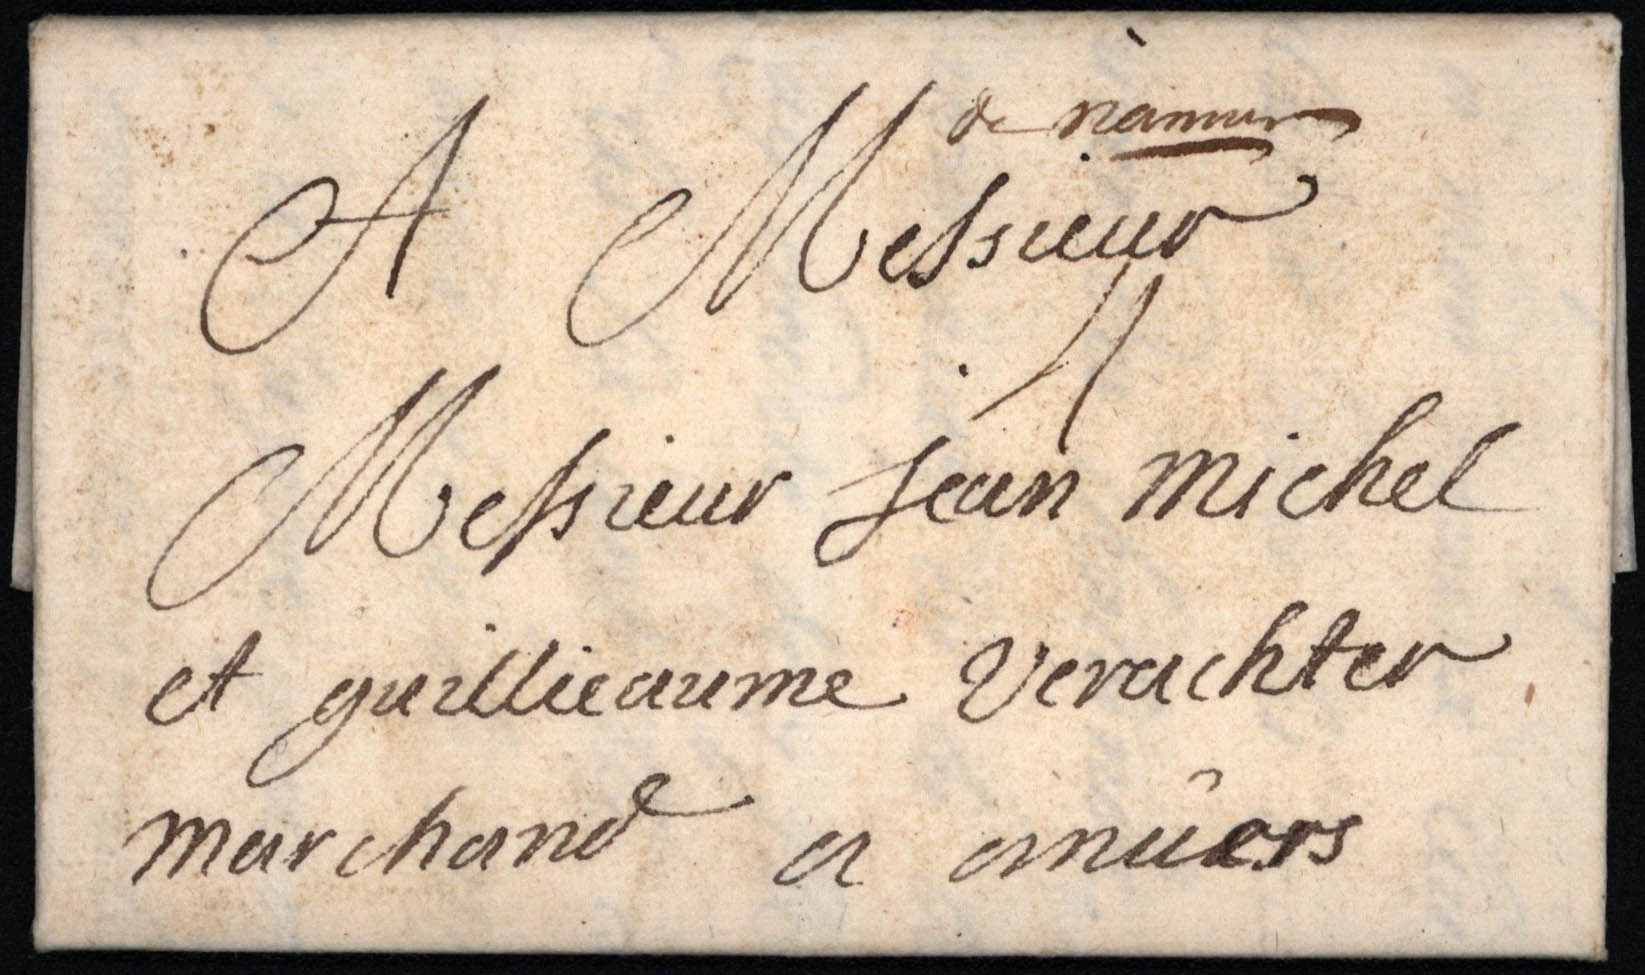 de Namur
A Messieur
Messieur Jean Michel
et guillieaume Verachter
marchand a anuers